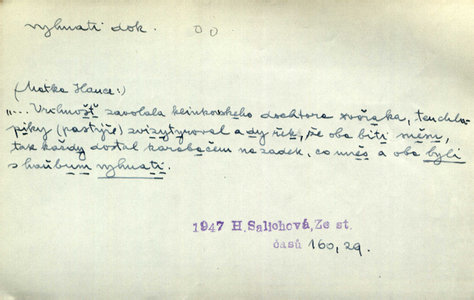 vyhnati dok.
(Matka Hance:)
"... Vrchnošť zavolala kleinkovskeho dochtora zvěřaka, ten chla-
píky (pastýře) zvizytýroval a dy řek, že oba biti měm,
tak každy dostal karabačem na zadek, co unés a oba byli
s haňbum vyhnatí.
1947 H. Salichová, Ze st.
časů 160, 29.